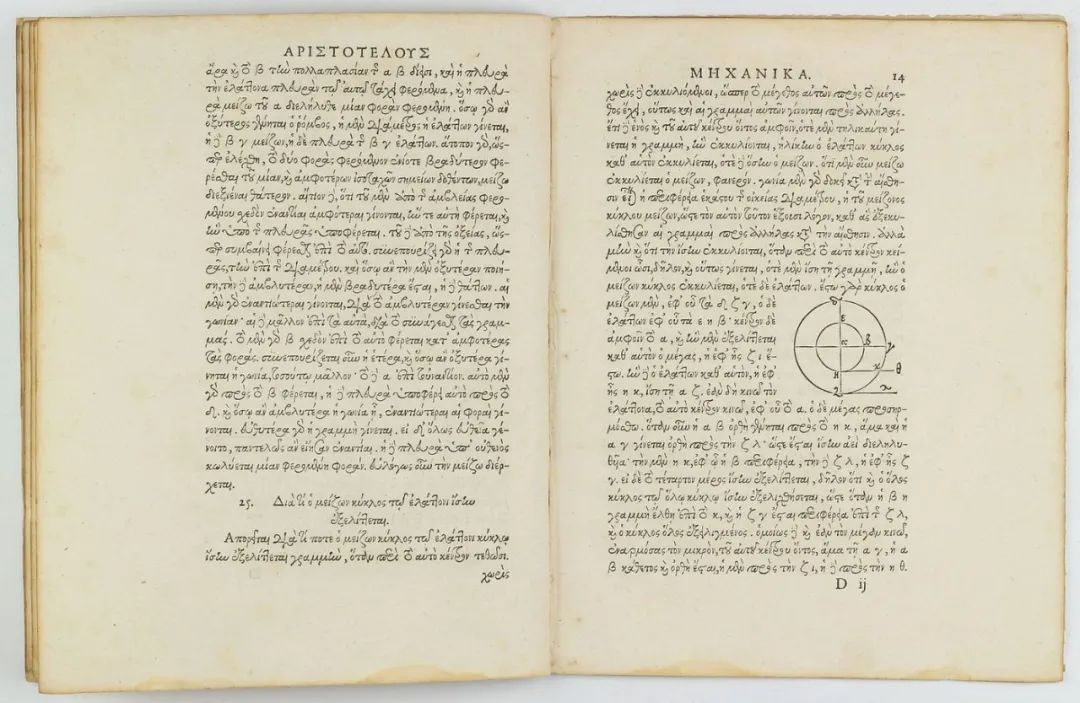 ΑΡΙΣΤΟΤΕΛΟΥΣ
ἄρα καὶ τὸ β τὴν πολλαπλασίαν τῆς α β δίεισι, καὶ ἡ πλευρὰ
τὴν ἐλάττονα πλευρὰν τῷ αὐτῷ τάχει φερομένη, καὶ ἡ πλευ-
ρὰ μείζω τοῦ α διελήλυθε μίαν φορὰν φερομένη. ὅσῳ γὰρ ἂν
ὀξύτερος γένηται ὁ ῥόμβος, ἡ μὲν διάμετρος ἡ ἐλάττων γίνεται,
ἡ β γ μείζων, ἡ δὲ πλευρὰ τῆς β γ ἐλάττων. ἄτοπον γὰρ, ὥσ-
περ ἐλέχθη, τὸ δύο φορὰς φερόμενον ἐνίοτε βραδύτερον φέ-
ρεσθαι τοῦ μίαν, καὶ ἀμφοτέρων ἰσοταχῶν σημείων δοθέντων, μείζω
διεξιέναι θάτερον. αἴτιον δὲ, ὅτι τοῦ μὲν ἀπὸ τῆς ἀμβλείας φερο-
μένου σχεδὸν ἐναντίαι ἀμφότεραι γίνονται, ἥν τε αὐτὴ φέρεται, καὶ
ἣν ὑπὸ τῆς πλευρᾶς ὑποφέρεται. τοῦ δὲ ἀπὸ τῆς ὀξείας, ὥσ-
περ συμβαίνει φέρεσθαι ἐπὶ τὸ αὐτό. συνεπουρίζει γὰρ ἡ τῆς πλευ-
ρᾶς, τὴν ἐπὶ τῆς διαμέτρου. καὶ ὅσῳ ἂν τὴν μὲν ὀξυτέραν ποιή-
σῃ, τὴν δὲ ἀμβλυτέραν, ἡ μὲν βραδυτέρα ἔσται, ἡ δὲ θάττων. αἱ
μὲν γὰρ ἐναντιώτεραι γίνονται, διὰ τὸ ἀμβλυτέραν γίνεσθαι τὴν
γωνίαν· αἱ δὲ μᾶλλον ἐπὶ τὰ αὐτὰ, διὰ τὸ συνάγεσθαι τὰς γραμ-
μάς. τὸ μὲν γὰρ β σχεδὸν ἐπὶ τὸ αὐτὸ φέρεται κατ' ἀμφοτέρας
τὰς φοράς. συνεπουρίζεται οὖν ἡ ἑτέρα, καὶ ὅσῳ ἂν ὀξυτέρα γί-
νηται ἡ γωνία, τοσούτῳ μᾶλλον· τὸ δὲ α ἐπὶ τοὐναντίον. αὐτὸ μὲν
γὰρ πρὸς τὸ β φέρεται, ἡ δὲ πλευρὰ ὑποφέρει αὐτὸ πρὸς τὸ
δ. καὶ ὅσῳ ἂν ἀμβλυτέρα ἡ γωνία ᾖ, ἐναντιώτεραι αἱ φοραὶ γί-
νονται. εὐθυτέρα γὰρ ἡ γραμμὴ γίνεται. εἰ δ' ὅλως εὐθεῖα γέ-
νοιτο, παντελῶς ἂν εἴησαν ἐναντίαι. ἡ δὲ πλευρὰ ὑπ' οὐθενὸς
κωλύεται μίαν φερομένη φοράν. εὐλόγως οὖν τὴν μείζω διέρ-
χεται.
25. Διὰ τί ὁ μείζων κύκλος τῷ ἐλάττονι ἴσην
ἐξελίττεται.
Απορεῖται διὰ τί ποτε ὁ μείζων κύκλος τῷ ἐλάττονι κύκλῳ
ἴσην ἐξελίττεται γραμμὴν, ὅταν περὶ τὸ αὐτὸ κέντρον τεθῶσι.
χωρὶς
ΜΗΧΑΝΙΚΑ. 14
χωρὶς δὲ ἐκκυλιόμενοι, ὥσπερ τὸ μέγεθος αὐτῶν πρὸς τὸ μέγε-
θος ἔχει, οὕτως καὶ αἱ γραμμαὶ αὐτῶν γίνονται πρὸς ἀλλήλας.
ἔτι δὲ ἑνὸς καὶ τοῦ αὐτοῦ κέντρου ὄντος ἀμφοῖν, ὁτὲ μὲν τηλικαύτη γί-
νεται ἡ γραμμὴ, ἣν ἐκκυλίονται, ἡλίκην ὁ ἐλάττων κύκλος
καθ' αὑτὸν ἐκκυλίεται, ὁτὲ δὲ ὅσην ὁ μείζων. ὅτι μὲν οὖν μείζω
ἐκκυλίεται ὁ μείζων, φανερόν. γωνία μὲν γὰρ δοκεῖ κατὰ τὴν αἴσθη-
σιν εἶναι ἡ περιφέρεια ἑκάστου τῆς οἰκείας διαμέτρου, ἡ τοῦ μείζονος
κύκλου μείζων, ὥστε τὸν αὐτὸν τοῦτον ἕξουσι λόγον, καθ' ἃς ἐξεκυ-
λίσθησαν αἱ γραμμαὶ πρὸς ἀλλήλας κατὰ τὴν αἴσθησιν. ἀλλὰ
μὴν καὶ ὅτι τὴν ἴσην ἐκκυλίονται, ὅταν περὶ τὸ αὐτὸ κέντρον κεί-
μενοι ὦσι, δῆλον, καὶ οὕτως γίνεται, ὁτὲ μὲν ἴση τῇ γραμμῇ, ἣν ὁ
μείζων κύκλος ἐκκυλίεται, ὁτὲ δὲ ἐλάττων. ἔστω γὰρ κύκλος ὁ
μείζων μὲν, ἐφ' οὗ τὰ δ ζ γ, ὁ δὲ
ἐλάττων ἐφ' οὗ τὰ ε η β· κέντρον δὲ
ἀμφοῖν τὸ α, καὶ ἣν μὲν ἐξελίττεται
καθ' αὑτὸν ὁ μέγας, ἡ ἐφ' ἧς ζ ι ἔ-
στω. ἣν δὲ ὁ ἐλάττων καθ' αὑτὸν, ἡ ἐφ'
ἧς η κ, ἴση τῇ α ζ. ἐὰν δὴ κινῶ τὸν
ἐλάττονα, τὸ αὐτὸ κέντρον κινῶ, ἐφ' οὗ τὸ α. ὁ δὲ μέγας προσηρ-
μόσθω. ὅταν οὖν ἡ α β ὀρθὴ γένηται πρὸς τὸ η κ, ἅμα καὶ ἡ
α γ γίνεται ὀρθὴ πρὸς τὴν ζ λ· ὥστε ἔσται ἴσην ἀεὶ διεληλυ-
θυῖα· τὴν μὲν η κ, ἐφ' ᾧ ἡ β περιφέρεια, τὴν δὲ ζ λ, ἡ ἐφ' ἧς ζ
γ. εἰ δὲ τὸ τέταρτον μέρος ἴσην ἐξελίττεται, δῆλον ὅτι καὶ ὁ ὅλος
κύκλος τῷ ὅλῳ κύκλῳ ἴσην ἐξελιχθήσεται, ὥστε ὅταν ἡ β η
γραμμὴ ἔλθῃ ἐπὶ τὸ κ, καὶ ἡ ζ γ ἔσται περιφέρεια ἐπὶ τῆς ζ λ,
καὶ ὁ κύκλος ὅλος ἐξειλιγμένος. ὁμοίως δὲ καὶ ἐὰν τὸν μέγαν κινῶ,
ἐναρμόσας τὸν μικρὸν, τοῦ αὐτοῦ κέντρου ὄντος, ἅμα τῇ α γ, ἡ α
β κάθετος καὶ ὀρθὴ ἔσται, ἡ μὲν πρὸς τὴν ζ ι, ἡ δὲ πρὸς τὴν η θ.
D ij
δ
ε
α
β
γ
η
κ
θ
ζ
λ